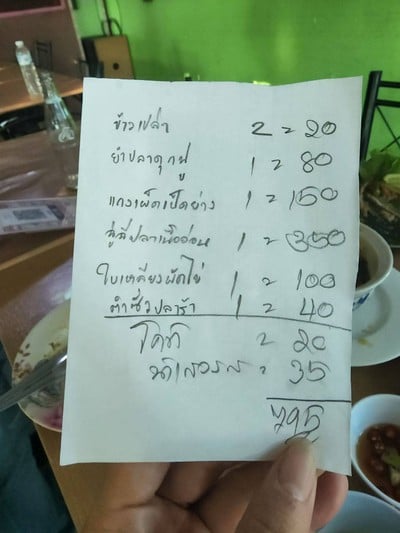 ข้าวเปล่า 2 = 20
ยำปลาดุกฟู 1 = 80
แกงเผ็ดเป็ดย่าง 1 = 150
ฉู่ฉี่ปลาเนื้ออ่อน 1 = 350
ใบเหลียงผัดไข่ 1 = 100
ตำซั่วปลาร้า 1 = 40
= 20
= 35
795